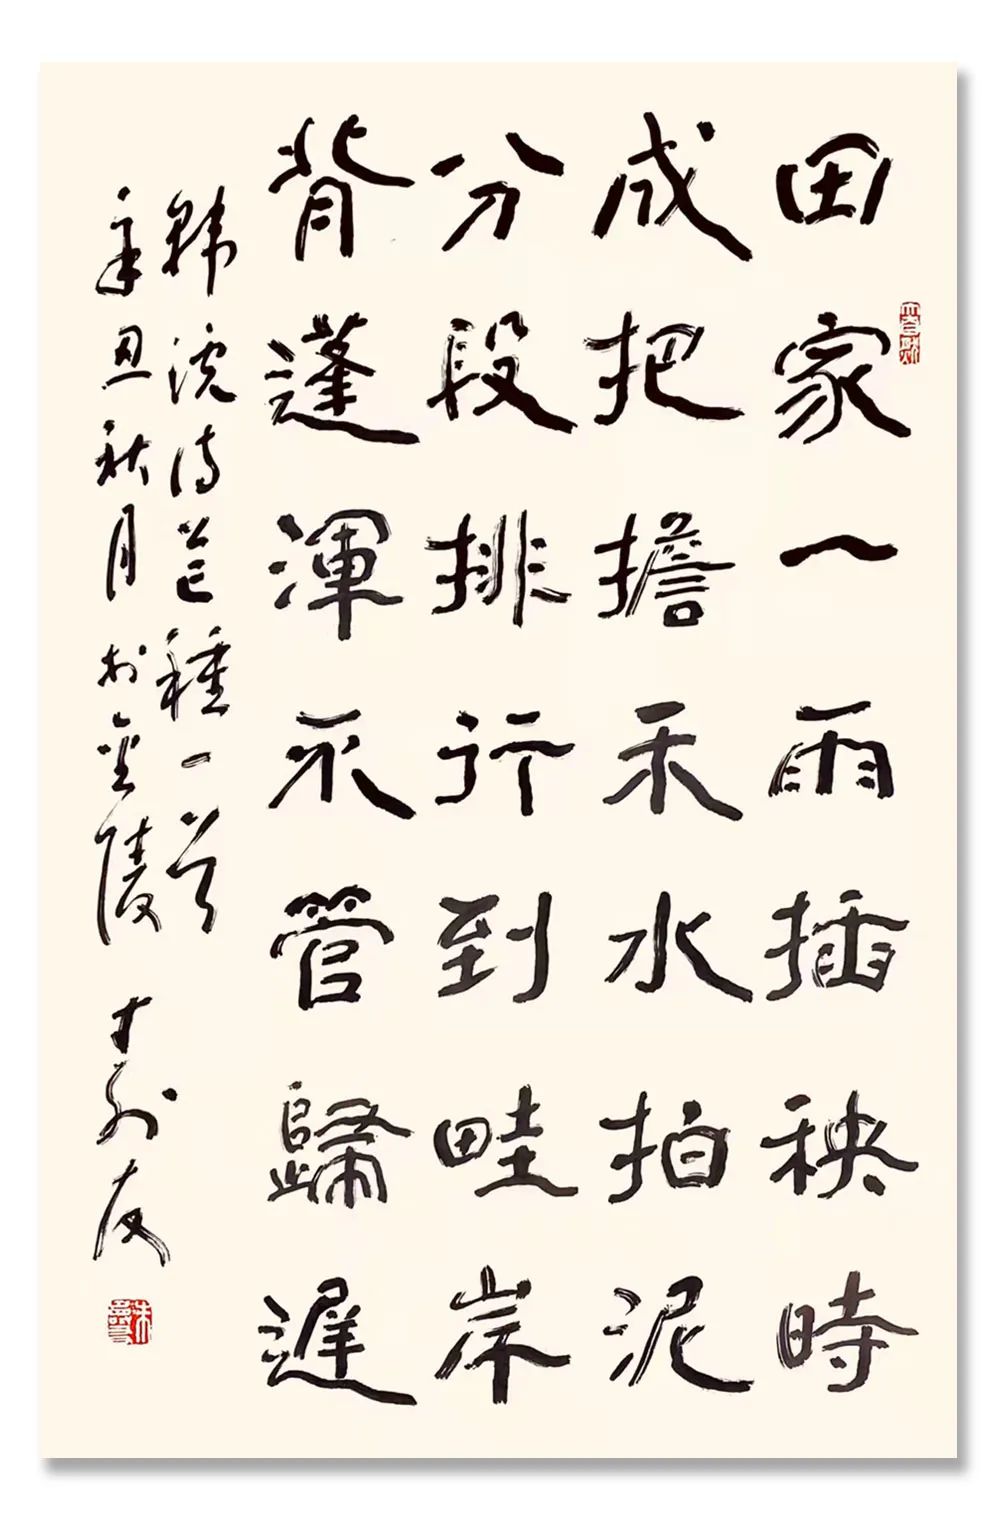 田家一雨插秧時
成把擔禾水拍泥
分段排行到畦岸
背蓬渾不管歸遲
韓淲詩芒種一首
辛丑秋月於金陵